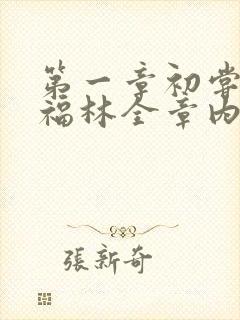 第一章初嘗
福林全章内
張新奇